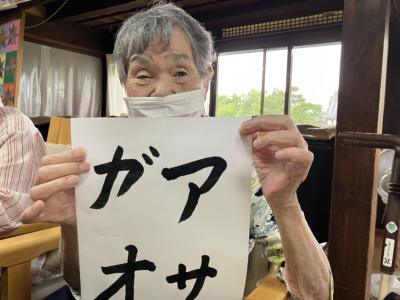 アサ
ガオ